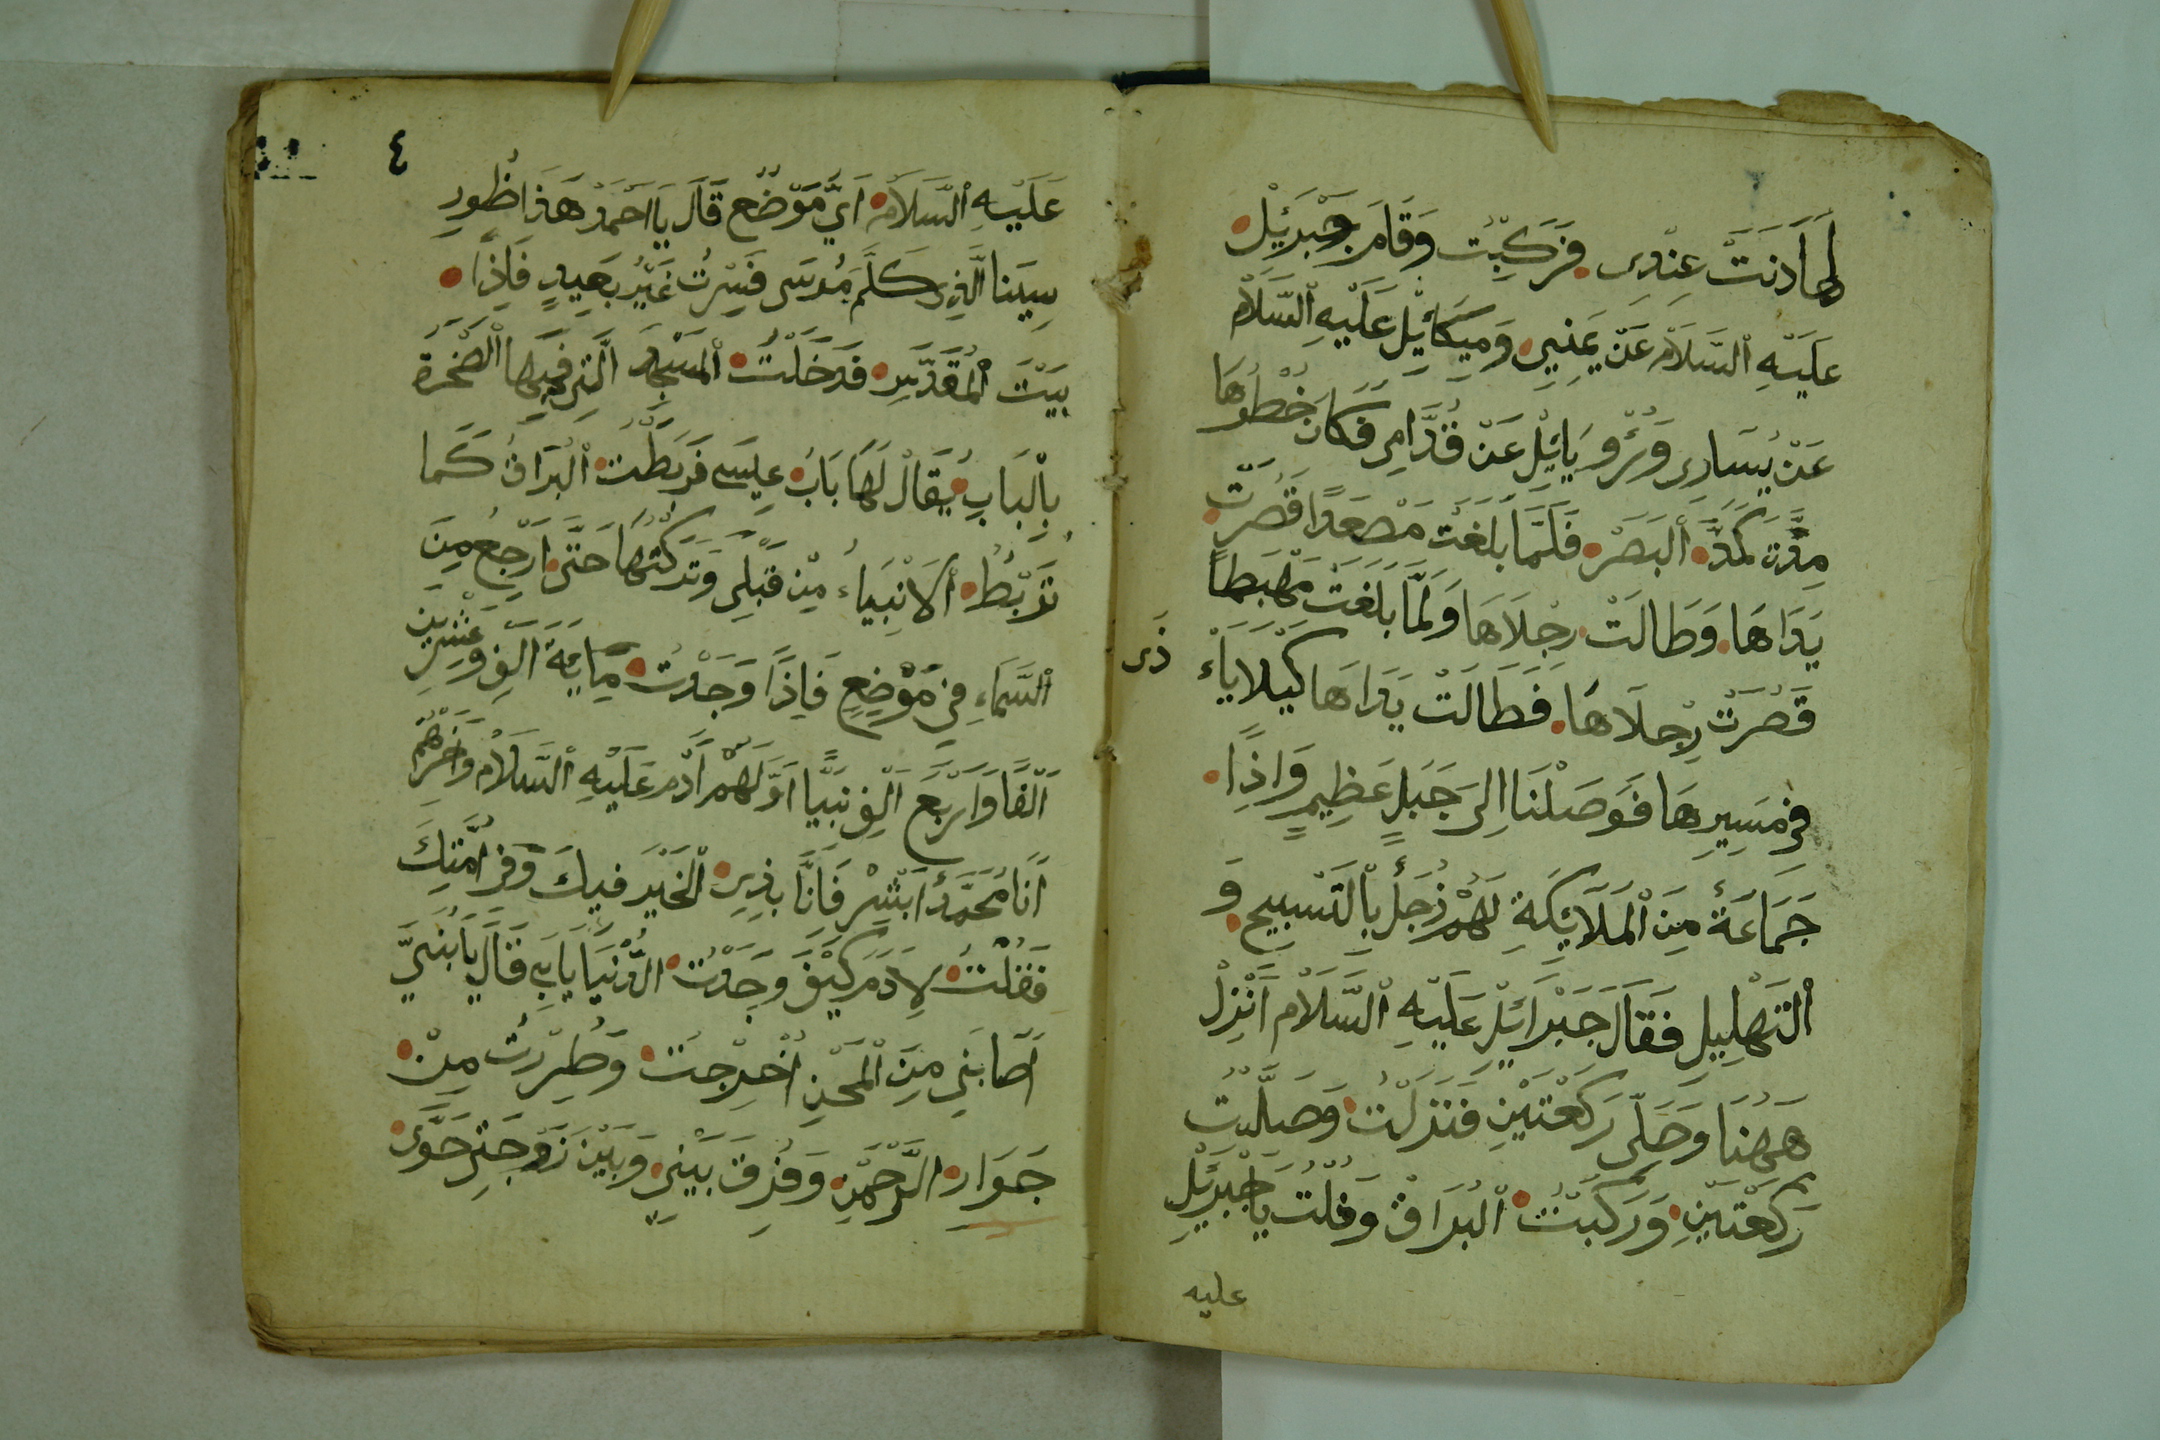 لها دَنَتْ عِنْدِى فَرَكِبْت وَقَامَ جِبْرَئِيْل
عَلَيْهِ السَّلَامْ عَنْ يَمِنِي وَمِيَكَائِيلِ عَلَيْهِ السَّلَامْ
عَنْ يَسَارِى وَرُؤيَائِيْلِ عَنْ قُدَّامِى فَكَانَ خُطْوُهَا
مِدَّتْ كَمَدِّ الْبَصَرْ فَلَمَّا بَلَغَتْ مَصْعَدًا قَصُرَتْ
يَدَاهَا وَطَالَتْ رِجْلَاهَا وَلَمَّا بَلَغَتْ مَهْبَطاً
قَصُرَتْ رِجْلَاهَا فَطَالَتْ يَدَاهَا كَيْلَا يَاءْ
ذَى
فِى مَسِيرِهَا فَوَصَلْنَا اِلَى جَبَلٍ عَظِيمٍ وَاِذًا
جَمَاعَةٌ مِنَ الْمَلَائِكَةِ لَهُمْ زُجَلٌ بِالْتَسْبِيحِ وَ
الْتَهْلِيلِ فَقَالَ جَبْرَائِيْلِ عَلَيْهِ السَّلَامْ اَنْزِلْ
هَهُنَا وَصَلِّى رَكْعَتَيْنِ فَنَزَلْتُ وَصَلَّيْتُ
رَكْعَتَيْنِ وَرَكَبْتُ الْبُرَاقْ وَقُلْتُ يَا جِبْرَئِيْلِ
عليه
٤
عَلَيْهِ السَّلَامْ اَىّ مَوْضُع قَالَ يَا اَحْمَدْ هَذَا طُورِ
سِيَنا الَّذِى كَلَّمَ مُوسَى فَسِرْتُ غَيْرُ بَعِيدٍ فَاِذًا
بَيْتَ الْمُقَدَّسِ فَدَخَلْتُ الْمَسْجِدَ الَّتِى فِيهَا الصَّخْرَةُ
بِالْبَابِ يُقَالْ لَهَا بَابُ عِيسَى فَرَبَطْتُ الْبُرَاقْ كَمَا
تَرْبُطُ الْاَنْبِيَاءُ مِنْ قَبْلِى وَتَرَكْتُهَا حَتَّى اَرْجِعُ مِنَ
السَّمَاءِ فِى مَوْضِعٍ فَاِذًا وَجَدْتُ مِايَةَ اَلِفٍ وَعِشْرِينَ
اَلْفًا وَاَرْبَعَ اَلِفِ نَبِيًّا اَوَّلَهُمْ اَدَم عَلَيْهِ السَّلَامْ وَاَخِرُهُمْ
اَنَا مُحَمَّدُ اَبْشِرْ فَاِنَّا بِذِىِ الْخَيْرَ فِيكَ وَفِى اُمَّتِكَ
فَقُلْتُ لِاَدَمَ كَيْفَ وَجَدْتَ الْدُنْيَا يَا بِى قَالَ يَا بُنَيَّ
اَصَابَنِي مِنَ الْمَحْنِ اُخْرِجْتُ وَطُرِدْتُ مِنْ
جَوَارِ الرَّحْمَنِ وَفُرِقَ بَيْنِى وَبَيْنَ زَوْجَتِى حَوَّى